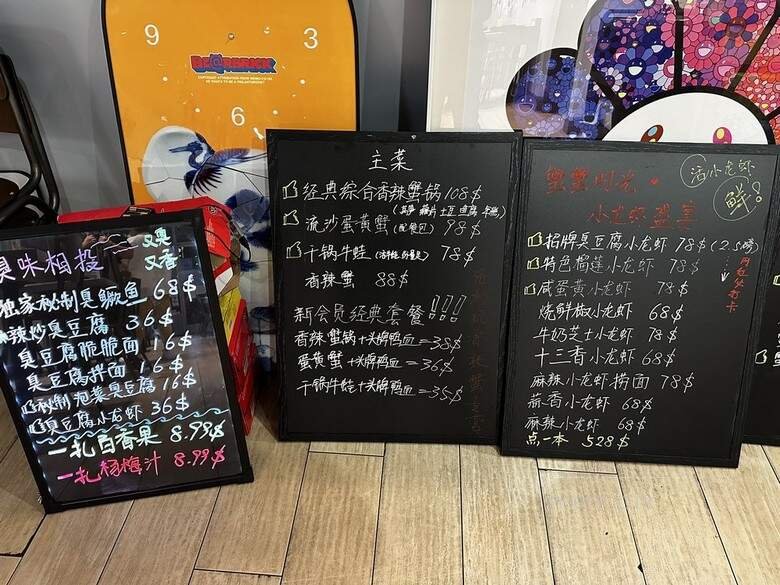 9
3
6
BE@RBRICK
臭味相投
又臭
又香
独家秘制臭鳜鱼 68$
麻辣炒臭豆腐 36$
臭豆腐脆脆面 16$
臭豆腐拌面 16$
秘制泡菜臭豆腐 16$
臭豆腐小龙虾 36$
一扎百香果 8.99$
一扎杨梅汁 8.99$
主菜
经典综合香辣蟹锅 108$
流沙蛋黄蟹 (配餐包) 98$
干锅牛蛙 78$
香辣蟹 88$
新会员经典套餐!!!
香辣蟹锅+头牌鸭血=38$
蛋黄蟹+头牌鸭血=36$
干锅牛蛙+头牌鸭血=35$
蟹蟹时光
小龙虾盛宴
活小龙虾
鲜!
招牌臭豆腐小龙虾 78$(2.5磅)
特色榴莲小龙虾 78$
咸蛋黄小龙虾 78$
烧鲜椒小龙虾 68$
牛奶芝士小龙虾 78$
十三香小龙虾 68$
麻辣小龙虾捞面 78$
蒜香小龙虾 68$
麻辣小龙虾 68$
点一本 528$
网红必打卡